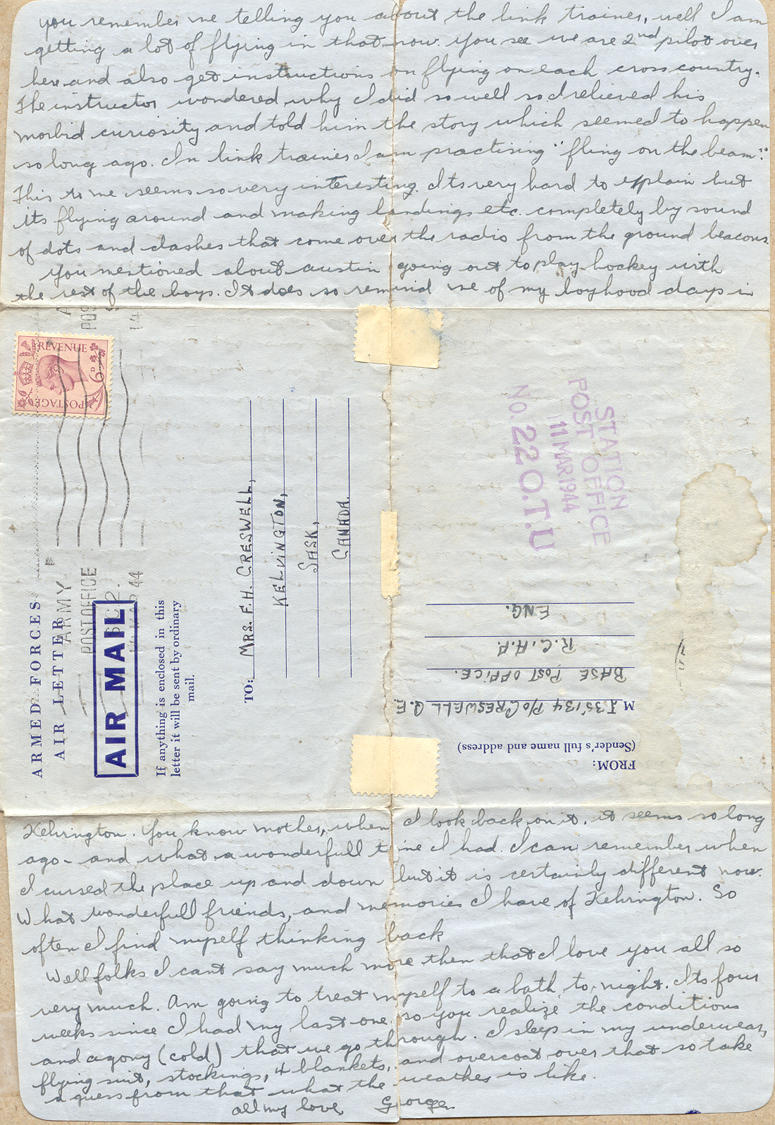 you remember me telling you about the link trainer, well I am
getting a lot of flying in that now. You see we are 2nd pilot over
here and also get instructions on flying on each cross country.
The instructor wondered why I did so well so I relieved his
morbid curiosity and told him the story which seemed to happen
so long ago. In link trainer I am practising "fling on the beam."
This to me seems so very interesting. Its very hard to explain but
its flying around and making landings etc. completely by sound
of dots and dashes that come over the radio from the ground beacons.
You mentioned about austin going out to play hockey with
the rest of the boys. It does so remind me of my boyhood days in
REVENUE
6D
POSTAGE
ARMED FORCES
AIR LETTER
ARMY
POST OFFICE
44
AIR MAIL
If anything is enclosed in this
letter it will be sent by ordinary
mail.
TO: MRS. F. H. CRESWELL,
KELVINGTON,
SASK,
CANADA.
STATION
POST OFFICE
11 MAR 1944
No. 22 O.T.U
FROM:
(Sender's full name and address)
P/O CRESWELL
BASE POST OFFICE.
ENG.
Kelvington. You know mother, when I look back on it, it seems so long
ago - and what a wonderfull time I had. I can remember when
I cursed the place up and down but it is certainly different now.
What wonderfull friends, and memories I have of Kelvington. So
often I find myself thinking back
Well folks I cant say much more then that I love you all so
very much. Am going to treat myself to a bath to-night. Its four
weeks since I had my last one, so you realize the conditions
and agony (cold) that we go through. I sleep in my underwear,
flying suit, stockings, 4 blankets, and overcoat over that so take
a guess from that what the weather is like.
all my love George